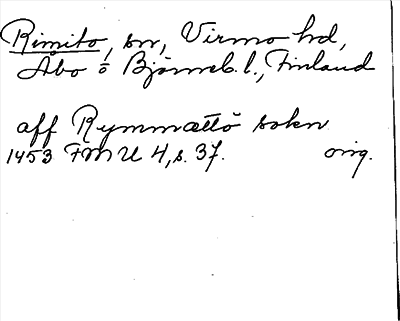 Rimito, sn, Virmo hd,
Åbo o Björneb. l., Finland
aff Rymmættö sokn
1453 FMU 4, s. 37. orig.